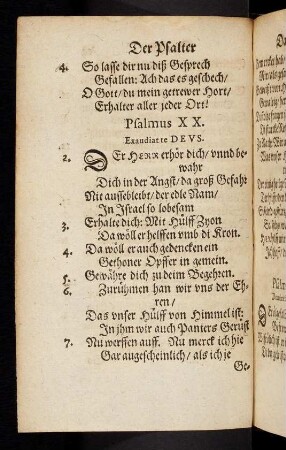 Der Psalter
4. So lasse dir nu diß Gesprech
Gefallen: Ach das es geschech/
O Gott/ du mein getrewer Hort/
Erhalter aller jeder Ort!
Psalmus XX.
Exaudiat te DEVS.
2. DEr HErr erhör dich/ vnnd be-
wahr
Dich in der Angst/ da groß Gefahr
Nit aussebleibt/ der edle Nam/
In Israel so lobesam
3. Erhalte dich: Mit Hülff Zyon
Da wöll er helffen vmb di Kron.
4. Da wöll er auch gedencken ein
Gethoner Opffer in gemein.
5. Gewähre dich zu deim Begehren.
6. Zurühmen han wir vns der Eh-
ren/
Das vnser Hülff von Himmel ist:
In jhm wir auch Paniers Gerüst
7. Nu werffen auff. Nu merck ich hie
Gar augescheinlich/ als ich je
Ge-